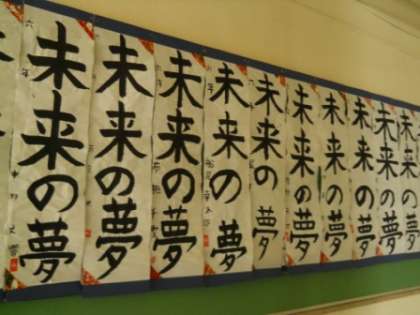 未来の夢
未来の夢
未来の夢
未来の夢
未来の夢
未来の夢
未来の夢
未来の夢
未来の夢
未来の夢